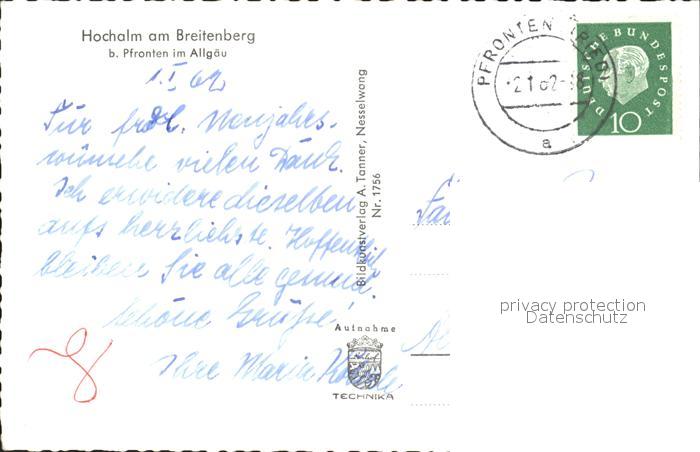 Hochalm am Breitenberg
b. Pfronten im Allgäu
1.I 62
Für frdl. Neujahrs-
wünsche vielen Dank.
Ich erwidere dieselben
aufs herzlichste. Hoffentl.
bleiben Sie alle gesund.
Schöne Grüße!
Ihre Maria
Bildkunstverlag A. Tanner, Nesselwang
Nr. 1756
Aufnahme
TECHNIKA
PFRONTEN (RIED)
-2.1.62-18
a
DEUTSCHE BUNDESPOST
10
privacy protection
Datenschutz